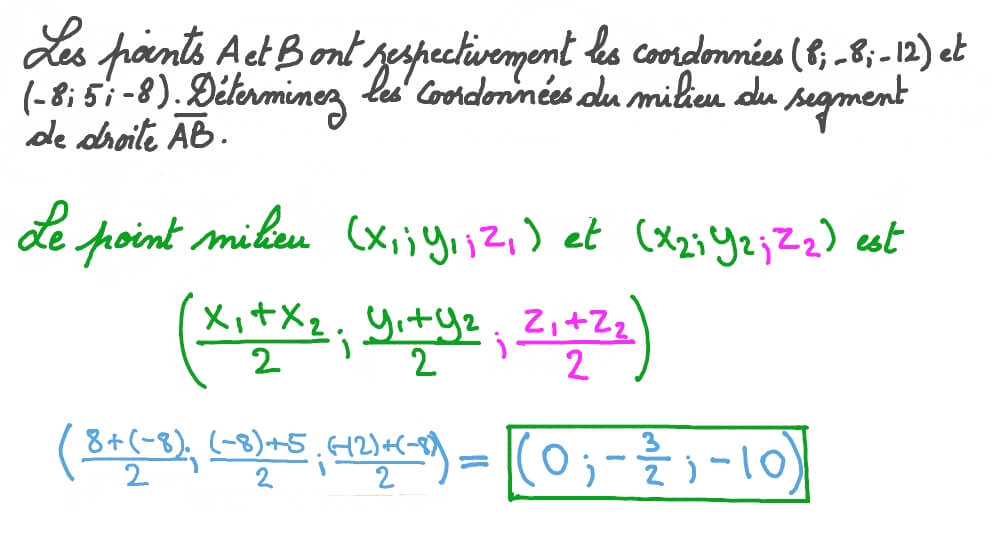 Les points A et B ont respectivement les coordonnées (8; -8; -12) et
(-8; 5; -8). Déterminez les coordonnées du milieu du segment
de droite \overline{AB}.
Le point milieu (x₁; y₁; z₁) et (x₂; y₂; z₂) est
((x₁+x₂)/2 ; (y₁+y₂)/2 ; (z₁+z₂)/2)
((8+(-8))/2 ; ((-8)+5)/2 ; ((-12)+(-8))/2) = (0 ; -3/2 ; -10)